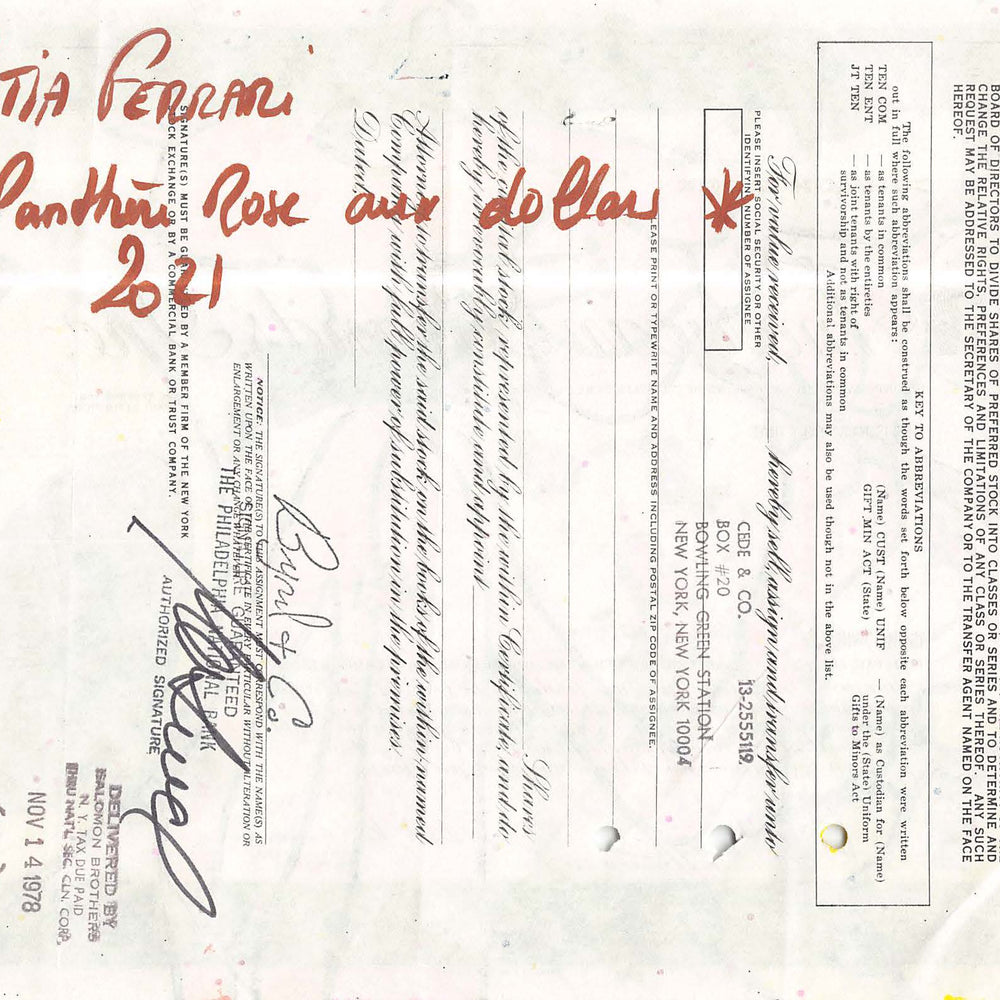 TIA FERRARI
Panthère Rose aux dollars *
2021
BOARD OF DIRECTORS TO DIVIDE SHARES OF PREFERRED STOCK INTO CLASSES OR SERIES AND TO DETERMINE AND
CHANGE THE RELATIVE RIGHTS, PREFERENCES AND LIMITATIONS OF ANY CLASS OR SERIES THEREOF. ANY SUCH
REQUEST MAY BE ADDRESSED TO THE SECRETARY OF THE COMPANY OR TO THE TRANSFER AGENT NAMED ON THE FACE
HEREOF.
KEY TO ABBREVIATIONS
The following abbreviations shall be construed as though the words set forth below opposite each abbreviation were written
out in full where such abbreviation appears:
TEN COM — as tenants in common (Name) CUST (Name) UNIF — (Name) as Custodian for (Name)
TEN ENT — as tenants by the entireties GIFT MIN ACT (State) under the (State) Uniform
JT TEN — as joint tenants with right of Gifts to Minors Act
survivorship and not as tenants in common
Additional abbreviations may also be used though not in the above list.
For value received, hereby sell, assign and transfer unto
PLEASE INSERT SOCIAL SECURITY OR OTHER
IDENTIFYING NUMBER OF ASSIGNEE
CEDE & CO. 13-2555119
BOX #20
BOWLING GREEN STATION
NEW YORK, NEW YORK 10004
PLEASE PRINT OR TYPEWRITE NAME AND ADDRESS INCLUDING POSTAL ZIP CODE OF ASSIGNEE.
Shares
of the capital stock represented by the within Certificate, and do
hereby irrevocably constitute and appoint
Attorney to transfer the said stock on the books of the within-named
Company with full power of substitution in the premises.
Dated,
Byrd & Co.
NOTICE: THE SIGNATURE(S) TO THIS ASSIGNMENT MUST CORRESPOND WITH THE NAME(S) AS
WRITTEN UPON THE FACE OF THE CERTIFICATE IN EVERY PARTICULAR WITHOUT ALTERATION OR
ENLARGEMENT OR ANY CHANGE WHATEVER.
SIGNATURE GUARANTEED
THE PHILADELPHIA NATIONAL BANK
SIGNATURE(S) MUST BE GUARANTEED BY A MEMBER FIRM OF THE NEW YORK
STOCK EXCHANGE OR BY A COMMERCIAL BANK OR TRUST COMPANY.
AUTHORIZED SIGNATURE
DELIVERED BY
SALOMON BROTHERS
N. Y. TAX DUE PAID
THRU NAT'L SEC. CLN. CORP.
NOV 14 1978